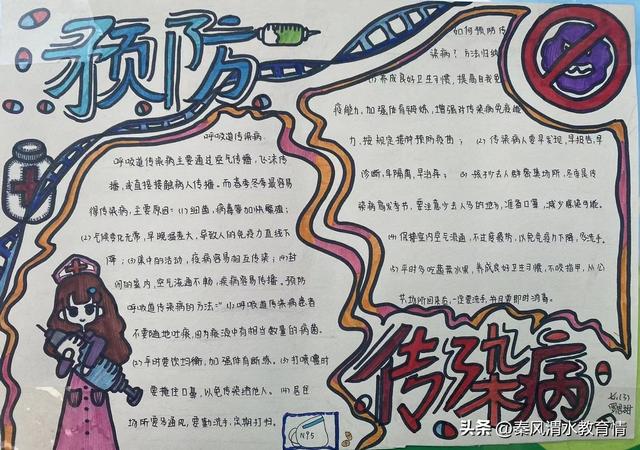 预防
呼吸道传染病
呼吸道传染病主要通过空气传播,飞沫传
播,或直接接触病人传播。而春季冬季最容易
得传染病,主要原因:(1)细菌,病毒等加快繁殖;
(2)气候变化无常,早晚温差大,导致人的免疫力直线下
降;(3)集中的活动,疫病容易相互传染;(4)封
闭的室内,空气流通不畅,疾病容易传播。预防
呼吸道传染病的方法:"(1)呼吸道传染病患者
不要随地吐痰,因为痰液中有相当数量的病菌。
(2)平时要饮均衡,加强体育断炼。(3)打喷嚏时
要掩住口鼻,以免传染给他人。(4)居住
场所要多通风,要勤洗手,定期打扫。
N95
如何预防传
染病?方法归纳
(1)养成良好卫生习惯,提高自我免
疫能力,加强体育锻炼,增强对传染病免疫能
力,按规定接种预防疫苗;(2)传染病人要早发现,早报告,早
诊断,早隔离,早治疗;(3)孩子少去人群密集场所,冬春是传
染病高发季节,要注意少去人多的地方,准备口罩,减少感染可能。
(4)保持室内空气流通,不过度疲劳,以免免疫力下降,多洗手。
(5)平时多吃蔬菜水果,养成良好卫生习惯,不咬指甲,从公
共场所回来后,一定要洗手,并且要即时消毒。
传染病
七.(3)
头条 @秦风渭水教育情